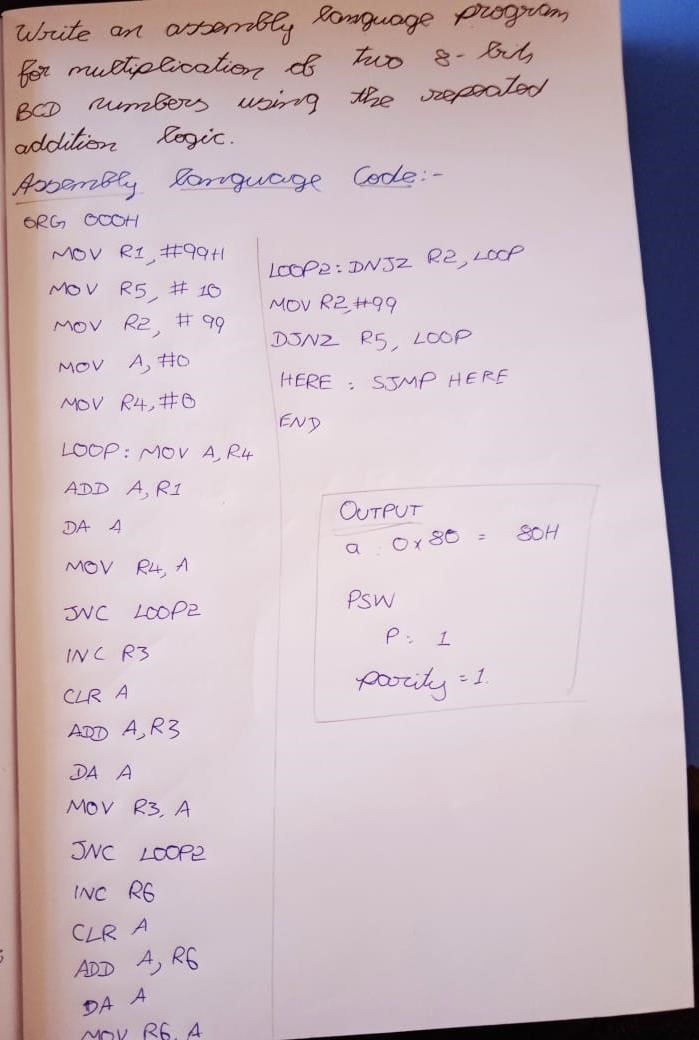 Write an assembly language program
for multiplication of two 8-bits
BCD numbers using the repeated
addition logic.
Assembly language Code:-
ORG 000H
MOV R1, #99H
MOV R5, #10
MOV R2, #99
MOV A, #0
MOV R4, #0
LOOP: MOV A, R4
ADD A, R1
DA A
MOV R4, A
JNC LOOP2
INC R3
CLR A
ADD A, R3
DA A
MOV R3, A
JNC LOOP2
INC R6
CLR A
ADD A, R6
DA A
MOV R6, A
LOOP2: DNJZ R2, LOOP
MOV R2, #99
DJNZ R5, LOOP
HERE : SJMP HERE
END
OUTPUT
a 0x80 = 80H
PSW
P: 1
parity = 1.